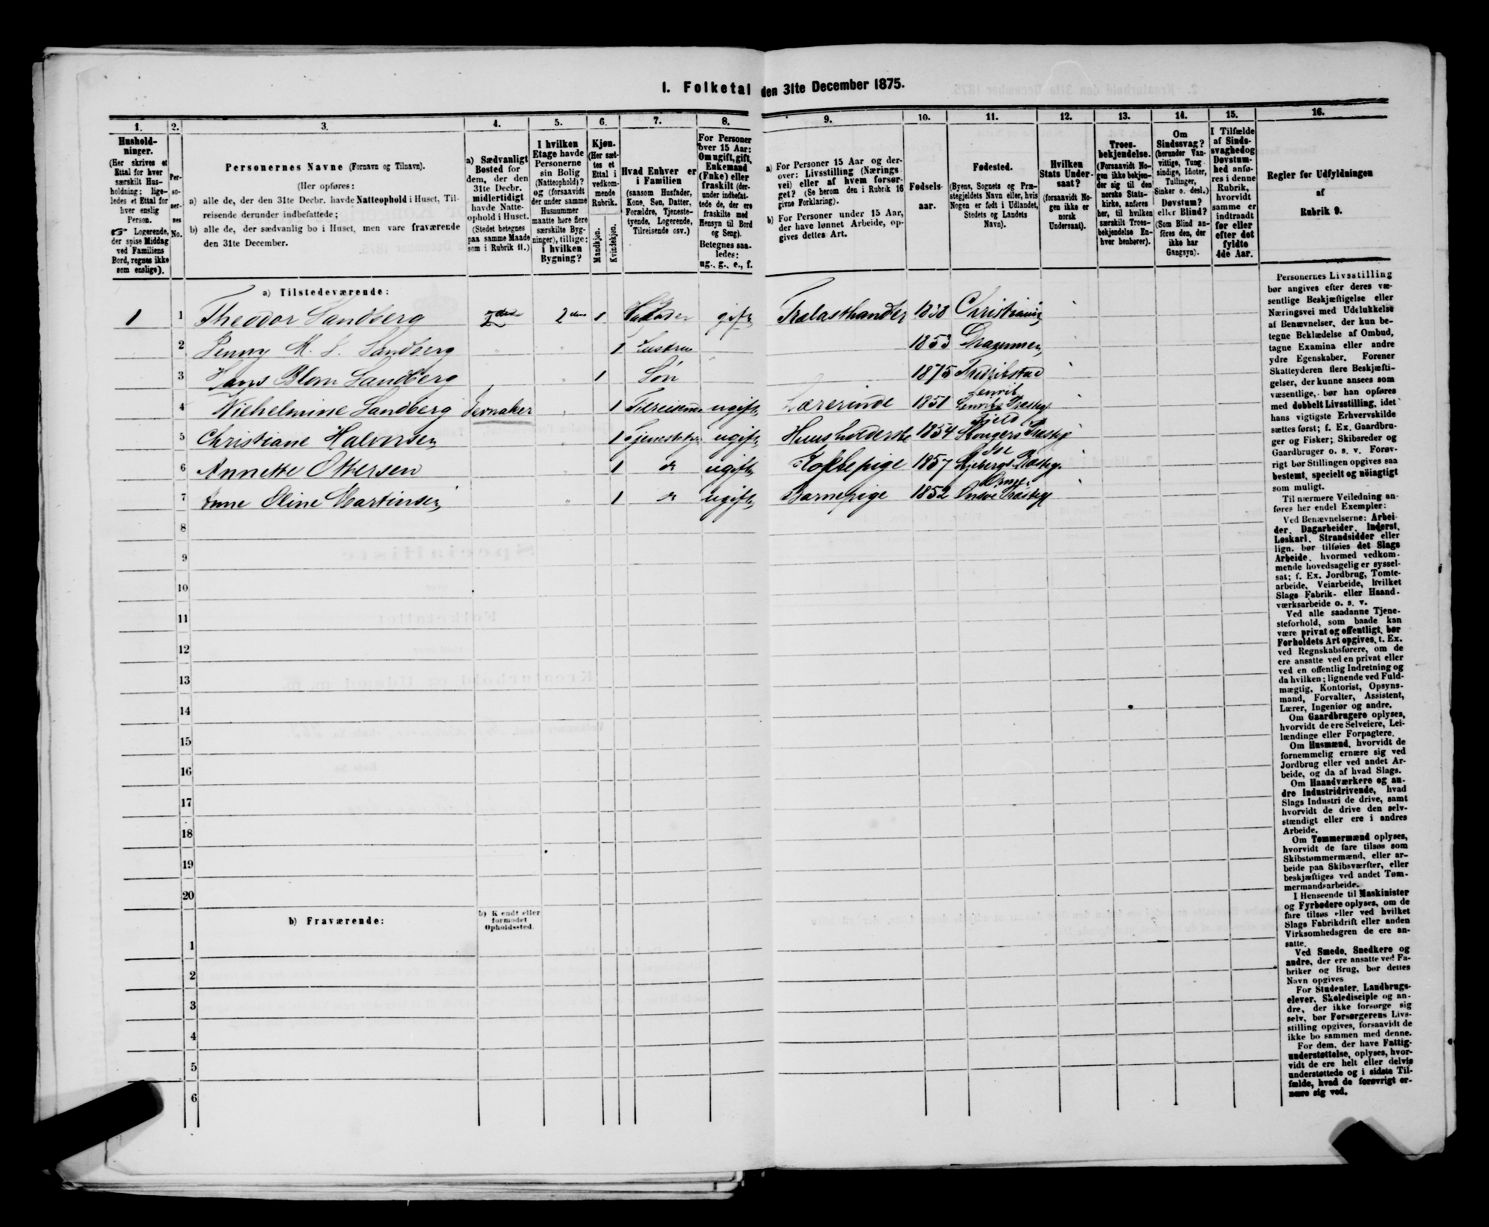 I. Folketal den 31te December 1875.
1.
2.
3.
4.
5.
6.
7.
8.
9.
10.
11.
12.
13.
14.
15.
16.
Hushold-
ninger.
(Her skrives et
Ettal for hver
særskilt Hus-
holdning; lige-
ledes et Ettal for
hver enslig
Person.
Logerende,
der spise Middag
ved Familiens
Bord, regnes ikke
som enslige).
Per-
so-
ner-
nes
No.
Personernes Navne (Fornavn og Tilnavn).
(Her opføres:
a) alle de, der den 31te Decbr. havde Natteophold i Huset, Til-
reisende derunder indbefattede;
b) alle de, der sædvanlig bo i Huset, men vare fraværende
den 31te December.
a) Sædvanligt
Bosted for
dem, der den
31te Decbr.
midlertidigt
havde Natte-
ophold i Huset.
(Stedet betegnes
paa samme Maade
som i Rubrik 11.)
I hvilken
Etage havde
Personerne
sin Bolig
(Natteophold)?
og (forsaavidt
der under samme
Husnummer
maatte høre flere
særskilte Byg-
ninger), tillige:
i hvilken
Bygning?
Kjøn.
(Her sæt-
tes et
Ettal i
vedkom-
mende
Rubrik.
Mandkjøn.
Kvindekjøn.
Hvad Enhver er
i Familien
(saasom Husfader,
Kone, Søn, Datter,
Forældre, Tjeneste-
tyende, Logerende,
Tilreisende osv.)
For Personer
over 15 Aar:
Om ugift, gift,
Enkemand
(Enke) eller
fraskilt (der-
under indbefat-
tede de, der ere
fraskilte med
Hensyn til Bord
og Seng).
Betegnes saa-
ledes:
ug., g., e., f.
a) For Personer 15 Aar og der-
over: Livsstilling (Nærings
vei) eller af hvem forsør-
get? (Se herom den i Rubrik 16
givne Forklaring).
b) For Personer under 15 Aar,
der have lønnet Arbeide, op-
gives dettes Art.
Fødsels-
aar.
Fødested.
(Byens, Sognets og Præ-
stegjeldets Navn eller, hvis
Nogen er født i Udlandet,
Stedets og Landets
Navn).
Hvilken
Stats Under-
saat?
(forsaavidt No-
gen ikke er
norsk
Undersaat).
Troes-
bekjendelse.
(Forsaavidt No-
gen ikke bekjen-
der sig til den
norske Stats-
kirke, anføres
her, til hvilken
særskilt Troes-
bekjendelse En-
hver henhører).
Om
Sindssvag?
(herunder Van-
vittige, Tung-
sindige, Idioter,
Tullinger,
Sinker o. desl.)
Døvstum?
eller Blind?
(Som Blind an-
føres den, der
ikke har
Gangsyn).
I Tilfælde
af Sinds-
svaghed og
Døvstum-
hed anfø-
res i denne
Rubrik,
hvorvidt
samme er
indtraadt
før eller
efter det
fyldte
4de Aar.
Regler for Udfyldningen
af
Rubrik 9.
a) Tilstedeværende:
1 1 Theodor Sandberg 2den 1 gift Trælasthandler 1838 Christiania
2 Penny M. S. Sandberg 1 Hustru 1853 Drammen
3 Hans Blom Sandberg 1 Søn 1875 Fredrikstad
4 Wilhelmine Sandberg Jevnaker 1 Tilreisende ugift Lærerinde 1851
5 Christiane Halvorsen 1 Tjenestetyende ugift Huusholderske 1854
6 Annette Ottersen 1 do ugift Kokkepige 1857
7 Anne Oline Martinsen 1 do ugift Barnepige 1852
8
9
10
11
12
13
14
15
16
17
18
19
20
b) Fraværende:
b) Kendt eller
formodet
Opholdssted.
1
2
3
4
5
6
Personernes Livsstilling
bør angives efter deres væ-
sentlige Beskjæftigelse eller
Næringsvei med Udelukkelse
af Benævnelser, der kun be-
tegne Beklædelse af Ombud,
tagne Examina eller andre
ydre Egenskaber. Forener
Skatteyderen flere Beskjæfti-
gelser, der kunne ansees som
væsentlige, bør han opføres
med dobbelt Livsstilling, idet
hans vigtigste Erhvervskilde
sættes først; f. Ex. Gaardbru-
ger og Fisker; Skibsreder og
Gaardbruger o. s. v. Forøv-
rigt bør Stillingen opgives saa
bestemt, specielt og nøiagtigt
som muligt.
Til nærmere Veiledning an-
føres her endel Exempler:
Ved Benævnelserne: Arbei-
der, Dagarbeider, Inderst,
Løskarl, Strandsidder eller
lign. bør tilføies det Slags
Arbeide, hvormed vedkom-
mende hovedsagelig er syssel-
sat; f. Ex. Jordbrug, Tomte-
arbeide, Veiarbeide, hvilket
Slags Fabrik- eller Haand-
værksarbeide o. s. v.
Ved alle saadanne Tjene-
steforhold, som baade kan
være privat og offentligt, bør
Forholdets Art opgives, t. Ex.
ved Regnskabsførere, om de
ere ansatte ved en privat eller
ved en offentlig Indretning og
da hvilken; lignende ved Fuld-
mægtig, Kontorist, Opsyns-
mand, Forvalter, Assistent,
Lærer, Ingeniør og andre.
Om Gaardbrugere oplyses,
hvorvidt de ere Selveiere, Lei-
lændinge eller Forpagtere.
Om Husmænd, hvorvidt de
fornemmelig ernære sig ved
Jordbrug eller ved andet Ar-
beide, og da af hvad Slags.
Om Haandværkere og an-
dre Industridrivende, hvad
Slags Industri de drive, samt
hvorvidt de drive den selv-
stændigt eller ere i andres
Arbeide.
Om Tømmermænd oplyses,
hvorvidt de fare tilsøs som
Skibstømmermænd, eller ar-
beide paa Skibsværfter, eller
beskjæftiges ved andet Tøm-
mermandsarbeide.
I Henseende til Maskinister
og Fyrbødere oplyses, om de
fare tilsøs eller ved hvilket
Slags Fabrikdrift eller anden
Virksomhedsgren de ere an-
satte.
Ved Smede, Snedkere og
andre, der ere ansatte ved Fa-
briker og Brug, bør dettes
Navn opgives
For Studenter, Landbrugs-
elever, Skoledisciple og an-
dre, der ikke forsørge sig
selv, bør Forsørgerens Livs-
stilling opgives, forsaavidt de
ikke bo sammen med denne.
For dem, der have Fattig-
understøttelse, oplyses, hvor-
vidt de ere helt eller delvis
understøttede og i sidste Til-
fælde, hvad de forøvrigt er-
nære sig ved.